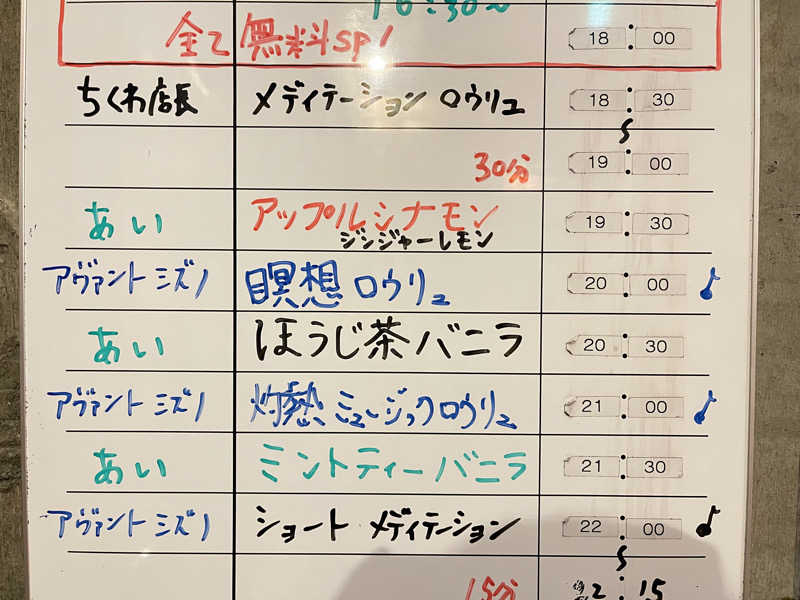 16:30~
全て無料SP! 18:00
ちくわ店長 メディテーション ロウリュ 18:30
30分 19:00
あい アップルシナモン 19:30
ジンジャーレモン
アヴァントミズノ 瞑想ロウリュ 20:00 ♪
あい ほうじ茶バニラ 20:30
アヴァントミズノ 灼熱ミュージックロウリュ 21:00 ♪
あい ミントティーバニラ 21:30
アヴァントミズノ ショート メディテーション 22:00 ♪
15分 22:15